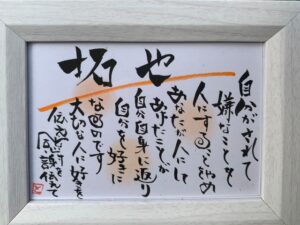 拓也
自分がされて
嫌なことを
人にすることをやめ
あなたが人にして
あげたことが
自分自身に返り
自分を好きに
なるのです
大切な人に好きを
感謝伝えて